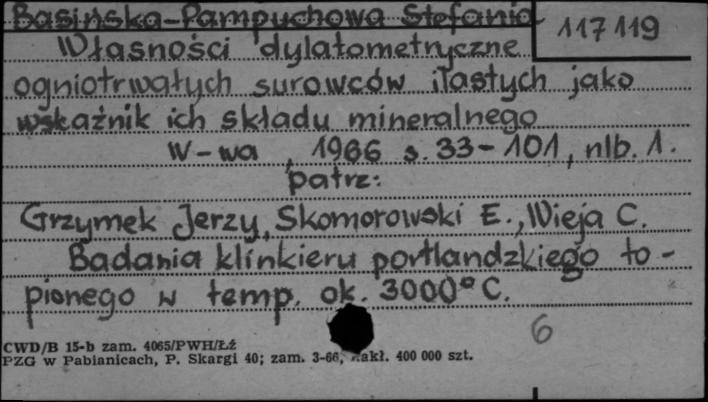 Basińska-Pampuchowa Stefania
117 119
Własności dylatometryczne
ogniotrwałych surowców ilastych jako
wskaźnik ich składu mineralnego
W-wa, 1966 s. 33-101, nlb. 1.
patrz:
Grzymek Jerzy, Skomorowski E., Wieja C.
Badania klinkieru portlandzkiego to-
pionego w temp. ok. 3000°C.
6
CWD/B 15-b zam. 4065/PWH/Łź
PZG w Pabianicach, P. Skargi 40; zam. 3-66, nakł. 400 000 szt.